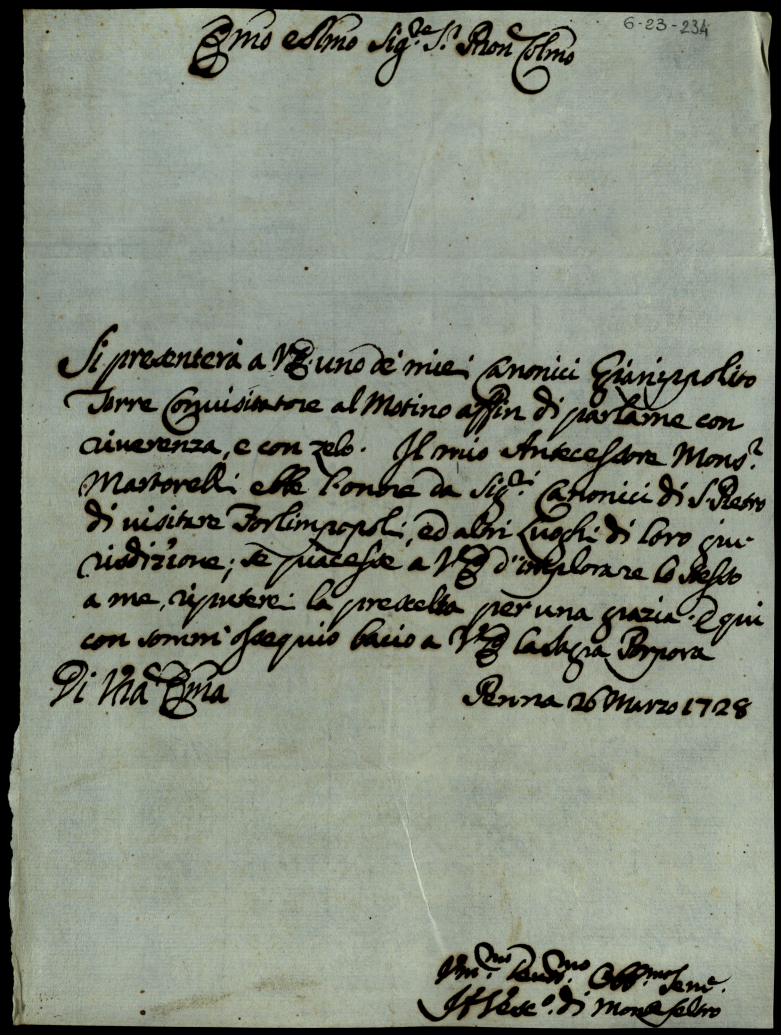 6-23-234
Emo e Rmo Sig.re S.r Pron Colmo
Si presenterà a V.E. uno de' miei Canonici Gianippolito
Torre Convisitatore al Motino affin di parlarne con
riverenza, e con zelo. Il mio Antecessore Mons.r
Martorelli ebbe l'onore da Sig.ri Canonici di S. Pietro
di visitare Forlimpopoli, ed altri Luoghi di loro giu-
risdizione; se piacesse a V.E. d'implorare lo stesso
a me, riputerei la prescelta per una grazia. E qui
con sommi ossequio bacio a V.E. la Sagra Porpora
Di Vra Emza
Penna 26 Marzo 1728
Um.mo Devmo Obb.mo Serve.
Il Vesc.o di Montefeltro